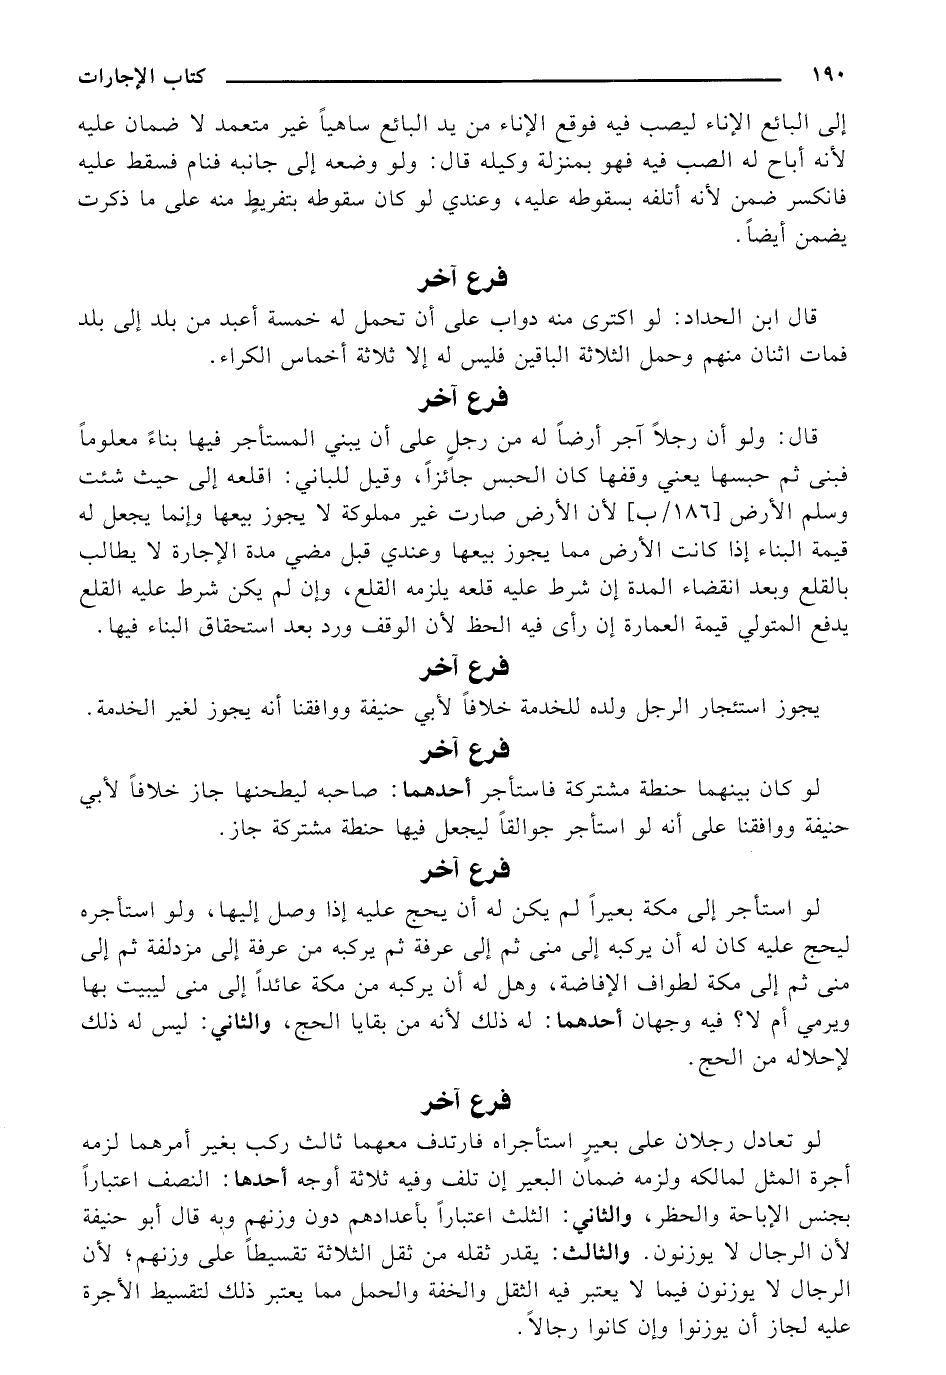 ١٩٠ كتاب الإجارات
إلى البائع الإناء ليصب فيه فوقع الإناء من يد البائع ساهياً غير متعمد لا ضمان عليه
لأنه أباح له الصب فيه فهو بمنزلة وكيله قال: ولو وضعه إلى جانبه فنام فسقط عليه
فانكسر ضمن لأنه أتلفه بسقوطه عليه، وعندي لو كان سقوطه بتفريطٍ منه على ما ذكرت
يضمن أيضاً.
فرع آخر
قال ابن الحداد: لو اكترى منه دواب على أن تحمل له خمسة أعبد من بلد إلى بلد
فمات اثنان منهم وحمل الثلاثة الباقين فليس له إلا ثلاثة أخماس الكراء.
فرع آخر
قال: ولو أن رجلاً آجر أرضاً له من رجلٍ على أن يبني المستأجر فيها بناءً معلوماً
فبنى ثم حبسها يعني وقفها كان الحبس جائزاً، وقيل للباني: اقلعه إلى حيث شئت
وسلم الأرض [١٨٦/ ب] لأن الأرض صارت غير مملوكة لا يجوز بيعها وإنما يجعل له
قيمة البناء إذا كانت الأرض مما يجوز بيعها وعندي قبل مضي مدة الإجارة لا يطالب
بالقلع وبعد انقضاء المدة إن شرط عليه قلعه يلزمه القلع، وإن لم يكن شرط عليه القلع
يدفع المتولي قيمة العمارة إن رأى فيه الحظ لأن الوقف ورد بعد استحقاق البناء فيها.
فرع آخر
يجوز استئجار الرجل ولده للخدمة خلافاً لأبي حنيفة ووافقنا أنه يجوز لغير الخدمة.
فرع آخر
لو كان بينهما حنطة مشتركة فاستأجر أحدهما: صاحبه ليطحنها جاز خلافاً لأبي
حنيفة ووافقنا على أنه لو استأجر جوالقاً ليجعل فيها حنطة مشتركة جاز.
فرع آخر
لو استأجر إلى مكة بعيراً لم يكن له أن يحج عليه إذا وصل إليها، ولو استأجره
ليحج عليه كان له أن يركبه إلى منى ثم إلى عرفة ثم يركبه من عرفة إلى مزدلفة ثم إلى
منى ثم إلى مكة لطواف الإفاضة، وهل له أن يركبه من مكة عائداً إلى منى ليبيت بها
ويرمي أم لا؟ فيه وجهان أحدهما: له ذلك لأنه من بقايا الحج، والثاني: ليس له ذلك
لإحلاله من الحج.
فرع آخر
لو تعادل رجلان على بعيرٍ استأجراه فارتدف معهما ثالث ركب بغير أمرهما لزمه
أجرة المثل لمالكه ولزمه ضمان البعير إن تلف وفيه ثلاثة أوجه أحدها: النصف اعتباراً
بجنس الإباحة والحظر، والثاني: الثلث اعتباراً بأعدادهم دون وزنهم وبه قال أبو حنيفة
لأن الرجال لا يوزنون. والثالث: يقدر ثقله من ثقل الثلاثة تقسيطاً على وزنهم؛ لأن
الرجال لا يوزنون فيما لا يعتبر فيه الثقل والخفة والحمل مما يعتبر ذلك لتقسيط الأجرة
عليه لجاز أن يوزنوا وإن كانوا رجالاً.